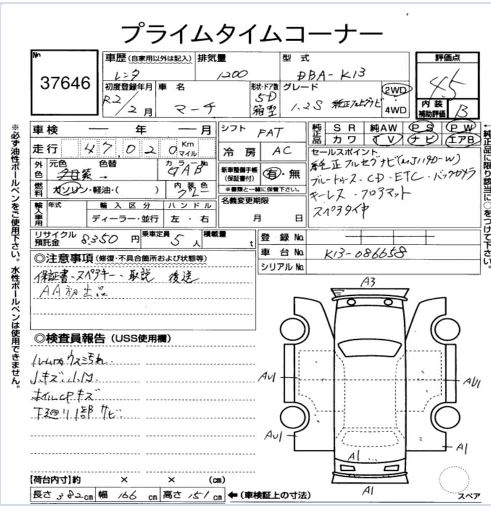 プライムタイムコーナー
No.
37646
車歴 (自家用以外は記入) 排気量 型式
レンタ 1200 DBA-K13
初度登録年月 車名 形状・ドア数 グレード
R2/2月 マーチ 5D 箱型 1.2S 純正フルセグナビ 2WD 4WD
評価点
4.5
内装補助評価 B
車検 ― 年 ― 月 シフト FAT
走行 47020 Km マイル 冷房 AC
純正品 SR 純AW PS PW
装備 カワ TV ナビ エアB
外色 元色 色替 カラーNo.
GAB
燃料 ガソリン・軽油・( ) 内装色 グレー
新車整備手帳(保証書付) 有・無
※書類と一緒に保管して下さい。
セールスポイント
純正フルセグナビ(MJ190-W)
ブルートゥース・CD・ETC・バックカメラ
キーレス・フロアマット
スペアタイヤ
輸入車用 年式 輸入区分 ハンドル
ディーラー・並行 左・右
名義変更期限
月 日
リサイクル預託金 8350円 乗車定員 5人 積載量 t
登録No.
車台No. K13-086658
シリアルNo.
◎注意事項 (修復・不具合箇所および状態等)
保証書・スペアキー・取説 後送
AA初出品
◎検査員報告 (USS使用欄)
ルーム内ウスミ汚れ
小キズ 小凹
ホイルCPキズ
下廻り1部サビ
A3
AU1
AU1
AU1
A1
A1
A1
スペア
【荷台内寸】 × × (cm)
長さ 382cm 幅 166cm 高さ 151cm ←(車検証上の寸法)
※必ず油性ボールペンをご使用下さい。水性ボールペンは使用できません。